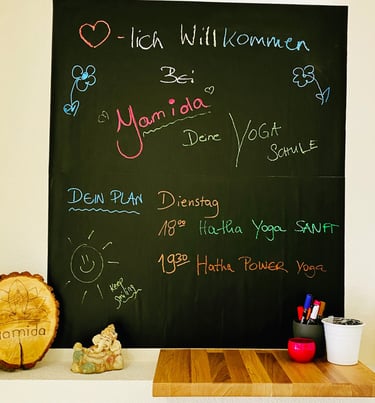 ♡-lich Willkommen
Bei
Yamida
Deine YOGA
SCHULE
DEIN PLAN Dienstag
18⁰⁰ Hatha Yoga SANFT
19³⁰ Hatha POWER Yoga
Keep
smiling
yamida